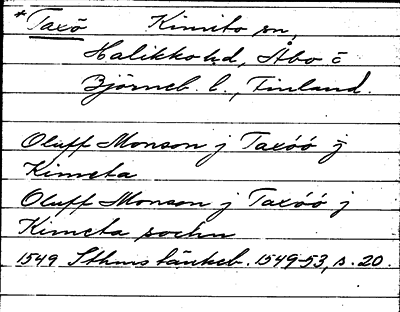 * Taxö Kimito sn,
Halikko hd, Åbo o
Björneb. l., Finland.
Oluff Monson j Taxóó j
Kimeta
Oluff Monson j Taxóó j
Kimeta sochn
1549 Sthms tänkeb. 1549-53, s. 20.